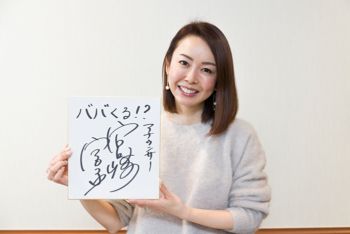 ババくる!?
アナウンサー
宮崎
宣子